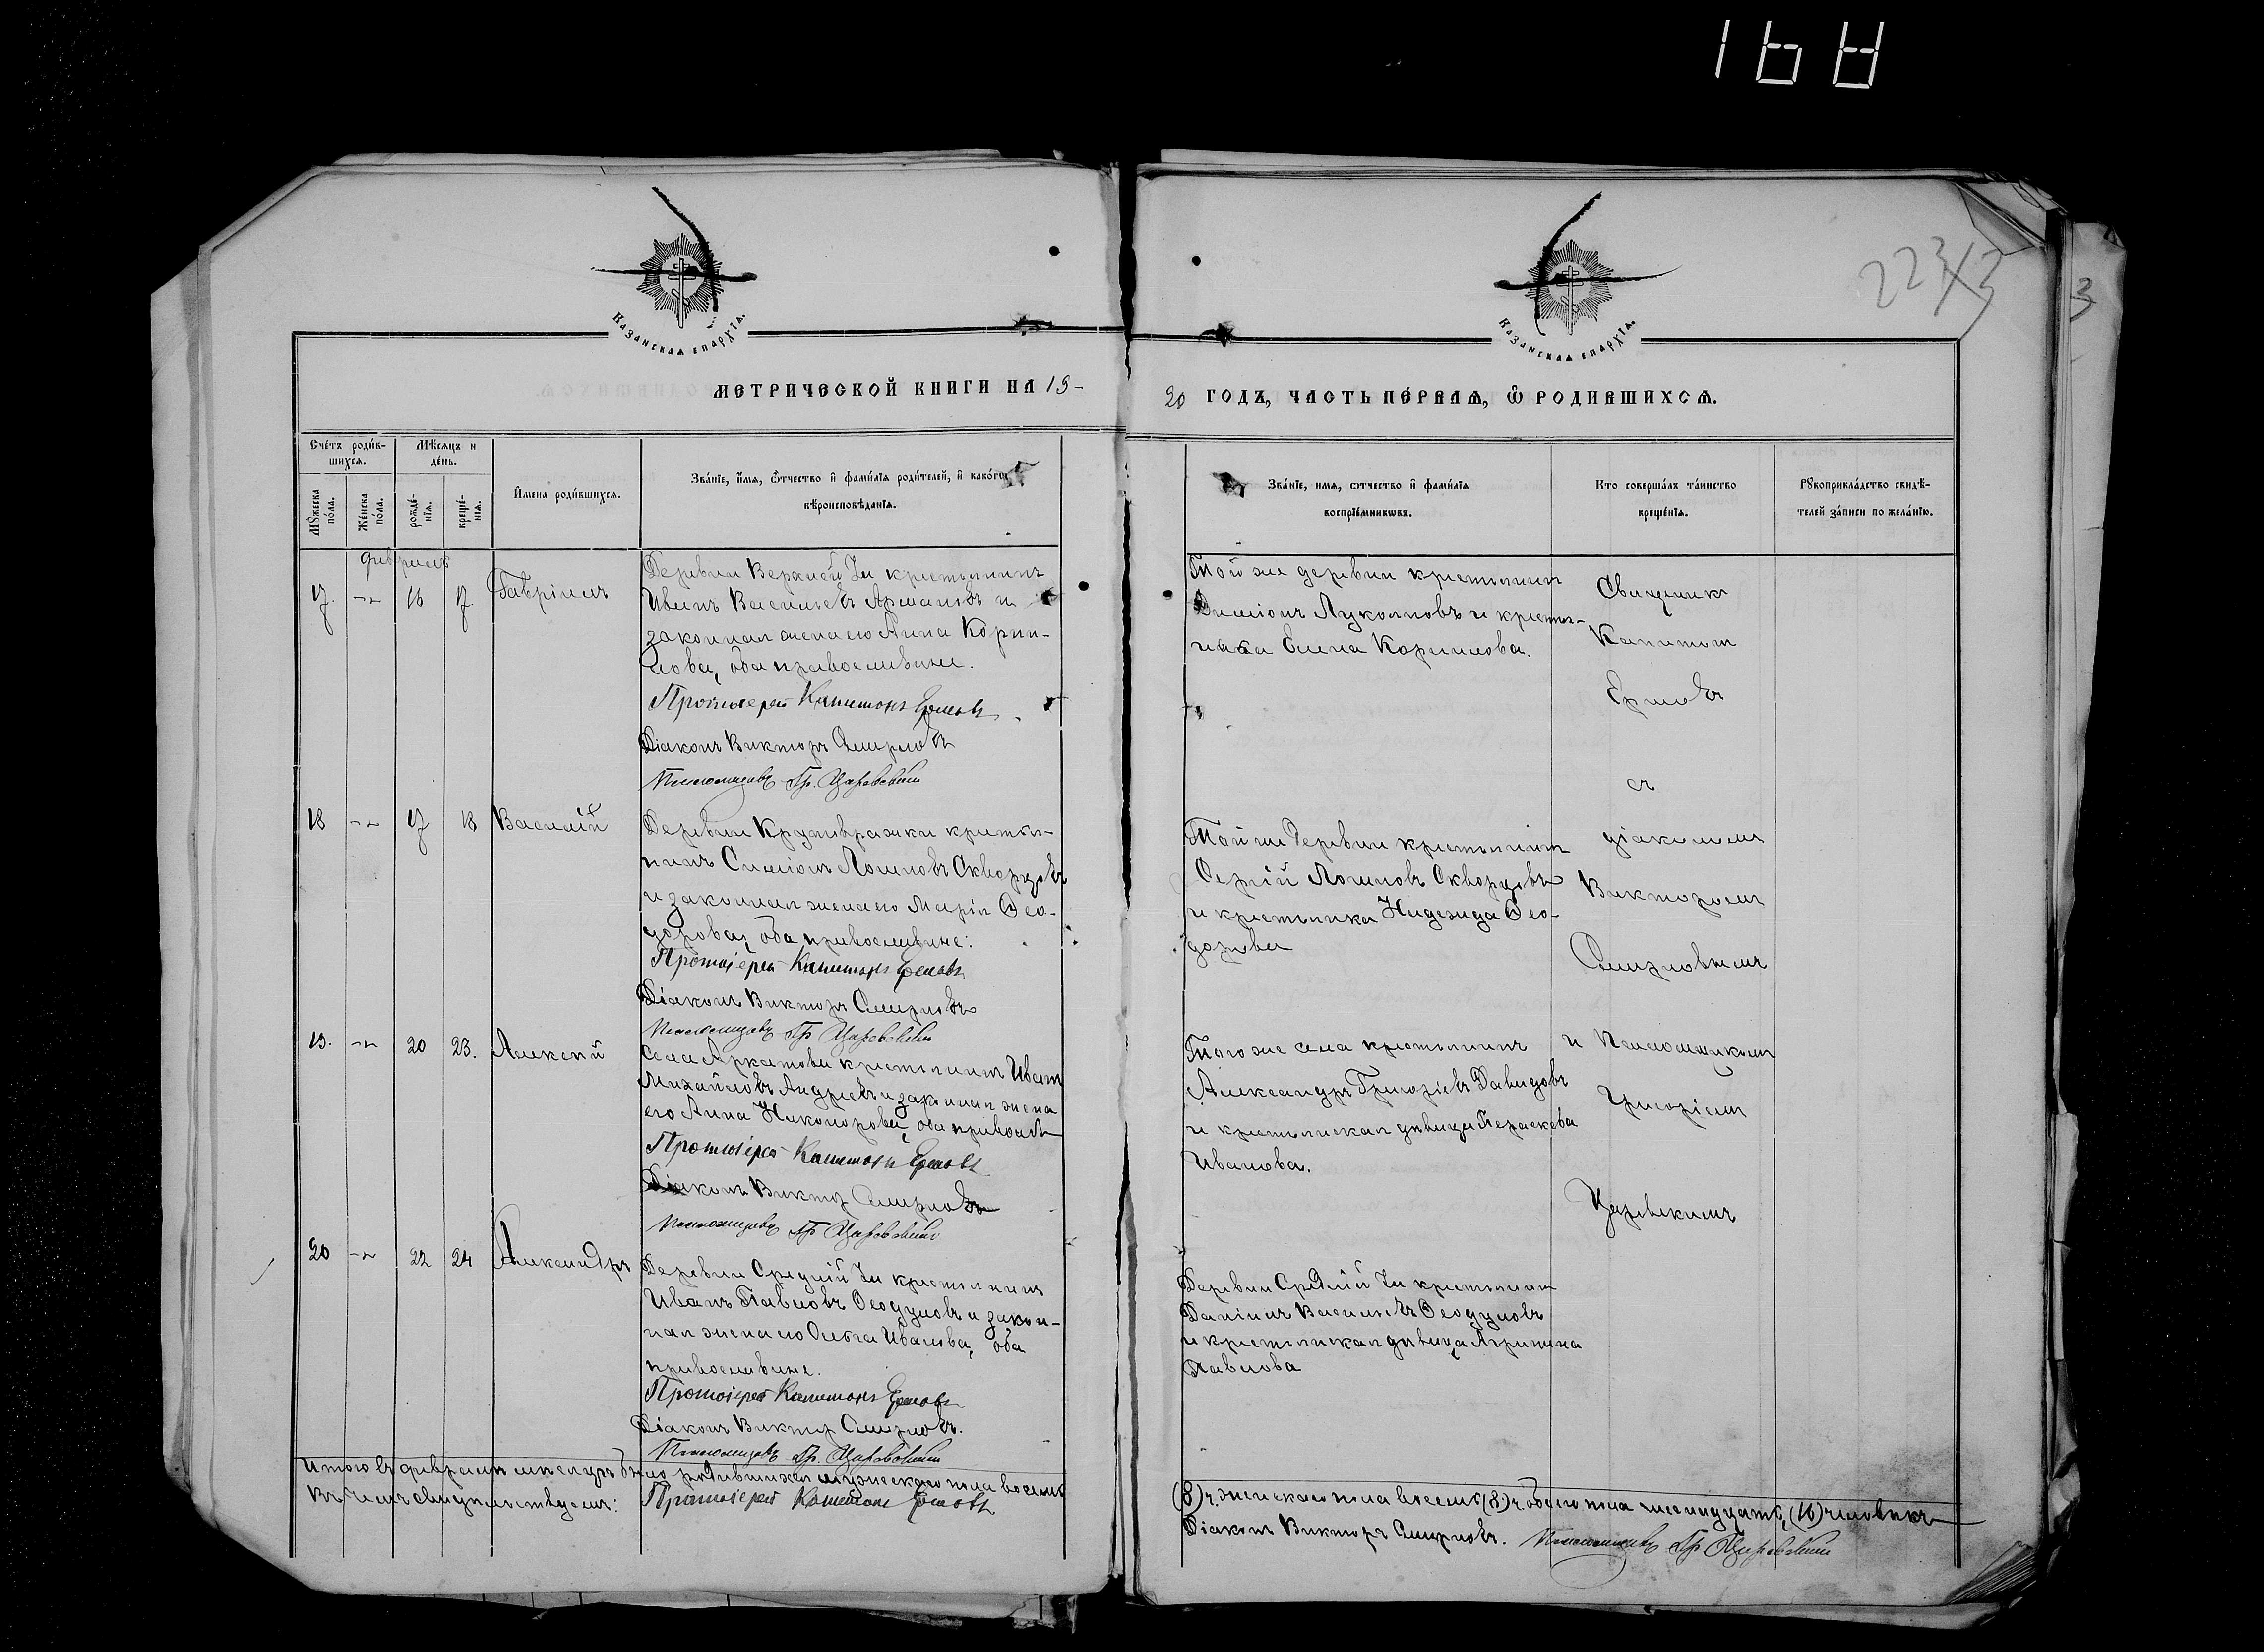 168
223
3
КАЗАНСКАЯ ЕПАРХІЯ.
КАЗАНСКАЯ ЕПАРХІЯ.
МЕТРИЧЕСКОЙ КНИГИ НА 19-
20 ГОДЪ, ЧАСТЬ ПЕРВАЯ, Ѽ РОДИВШИХСЯ.
Счетъ родив-
шихся.
Мѣсяцъ и
день.
Мужеска
пола.
Женска
пола.
рожде-
нія.
креще-
нія.
Имена родившихся.
Званіе, имя, ѻтчество и фамилія родителей, и какого
вѣроисповѣданія.
Званіе, имя, ѻтчество и фамилія
воспріемниковъ.
Кто совершалъ таинство
крещенія.
Рукоприкладство свидѣ-
телей записи по желанію.
февраль
17. 16 17 Гавріилъ
Деревни Верхней Іи крестьянинъ
Иванъ Васильевъ и
законная жена его Анна Корни-
лова, оба православные.
Протоіерей Капитонъ Ерловъ
Діаконъ Викторъ Смирновъ
Псаломщикъ Гр. Царевскій
Той же деревни крестьянинъ
Симеонъ Лукояновъ и кресть-
янка Елена Корнилова.
Священникъ
Капитон
Ерловъ
съ
діакономъ
Викторомъ
Смирновымъ
и Псаломщикомъ
Григоріемъ
Царевскимъ
18 17 18 Василій
Деревни Крутовражки крестья-
нинъ Симеонъ Логиновъ Скворцовъ
и законная жена его Марія Ѳео-
дорова, оба православные.
Протоіерей Капитонъ Ерловъ
Діаконъ Викторъ Смирновъ
Псаломщикъ Гр. Царевскій
Той же деревни крестьянинъ
Сергій Логиновъ Скворцовъ
и крестьянка Надежда Ѳео-
дорова
19. 20 23. Алексій
Села Аркатова крестьянинъ Иванъ
Михайловъ Андреевъ и законная жена
его Анна Никонорова, оба правосл
Протоіерей Капитонъ Ерловъ
Діаконъ Виктор Смирновъ
Псаломщикъ Гр. Царевскій
Того же села крестьянинъ
Александръ Григоріевъ Давидовъ
и крестьянская дѣвица Параскева
Иванова.
20 22 24 Александръ
Деревни Средній Іи крестьянинъ
Иванъ Павловъ Ѳеодуловъ и закон-
ная жена его Ольга Иванова, оба
православные.
Протоіерей Капитонъ Ерловъ
Діаконъ Виктор Смирновъ.
Псаломщикъ Гр. Царевскій
Деревни Средній Іи крестьянинъ
Даніилъ Васильевъ Ѳеодуловъ
и крестьянская дѣвица Агрипина
Павлова
Итого въ февралѣ мѣсяцѣ было родившихся мужескаго пола восемь
(8) ч. женскаго пола восемь (8) ч. обоего пола шестнадцать, (16) человѣкъ
Въ чемъ свидѣтельствуемъ: Протоіерей Капитонъ Ерловъ
Діаконъ Викторъ Смирновъ. Псаломщикъ Гр. Царевскій